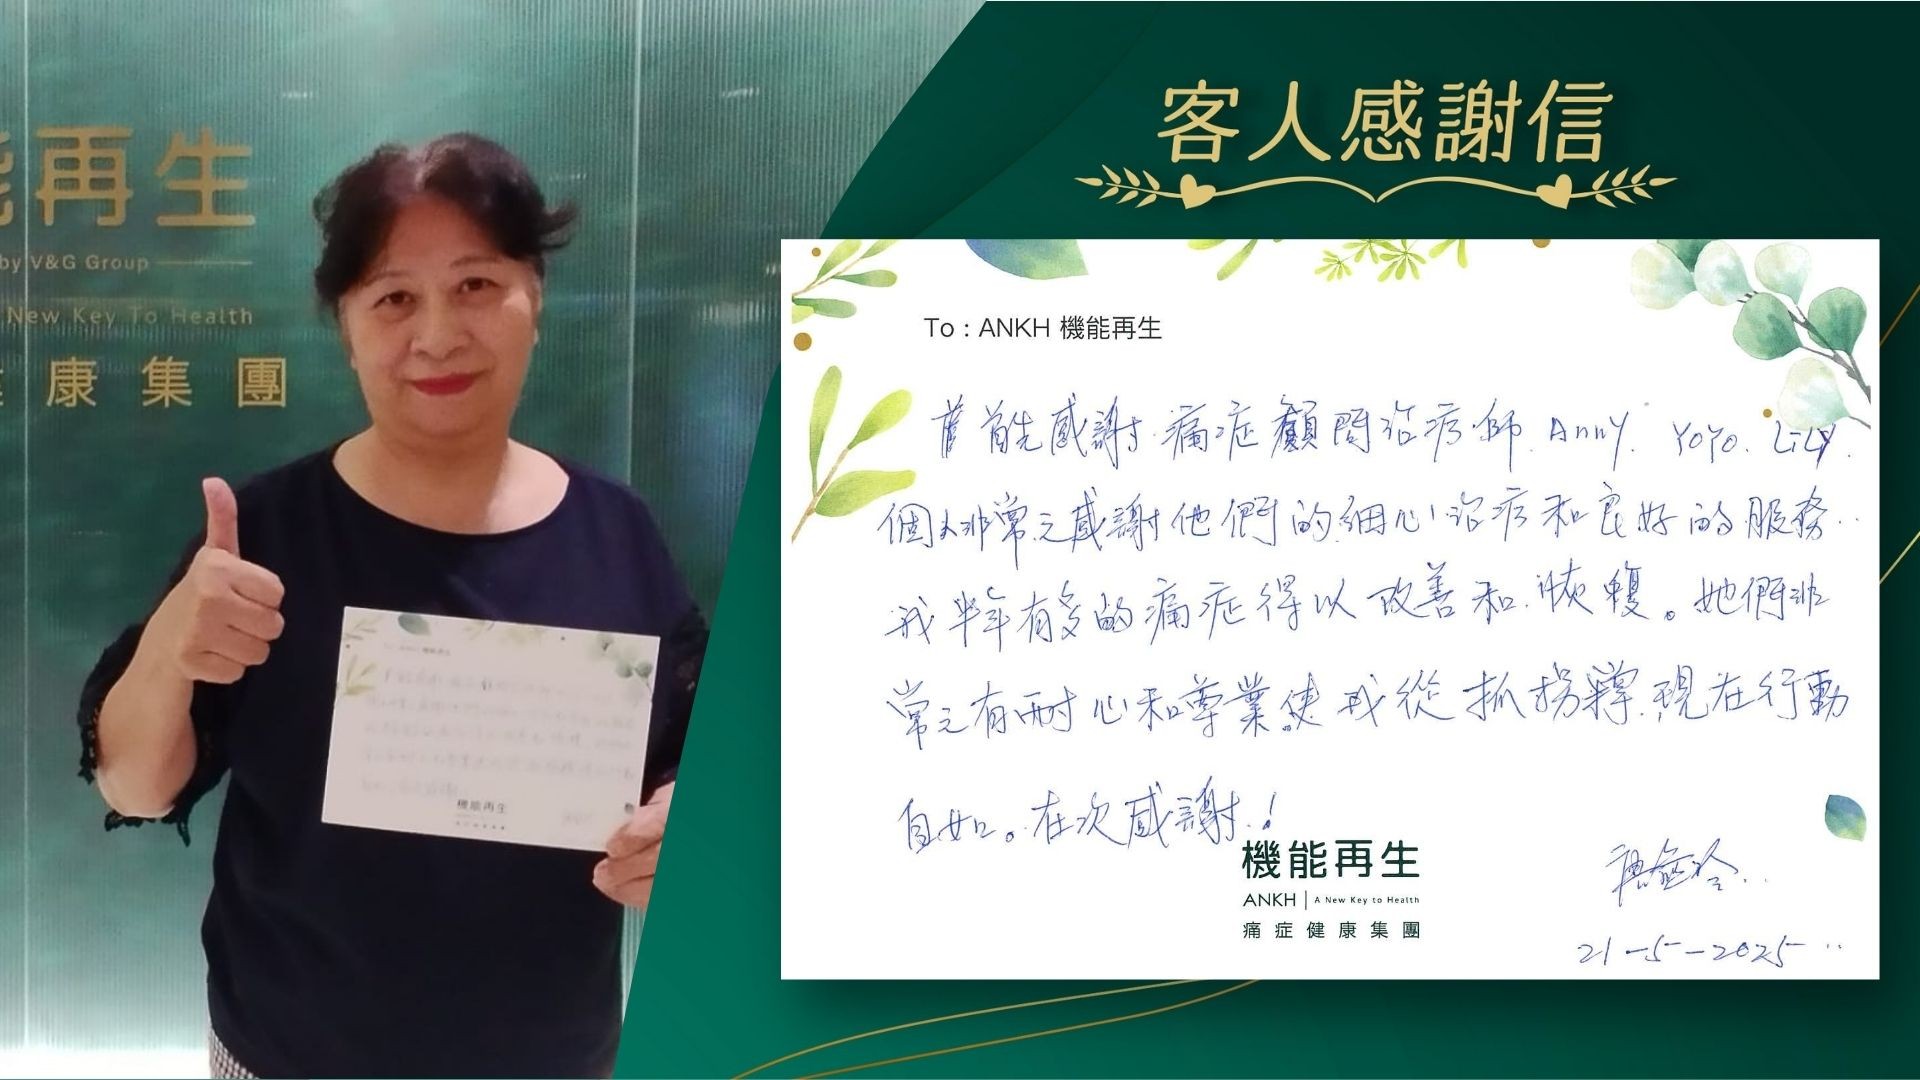 能再生
by V&G Group
New Key To Health
康集團
機能再生
客人感謝信
To : ANKH 機能再生
首先感謝痛症顧問治疗師. Anny. YoYo. LiLy.
個人非常之感謝他們的細心治疗和良好的服務..
我半年有多的痛症得以改善和恢復。她們非
常之有耐心和專業使我從抓拐 現在行動
自如。在次感謝!
機能再生
ANKH | A New Key to Health
痛症健康集團
21-5-2025